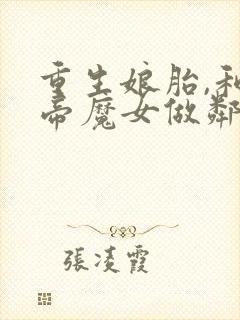 重生娘胎,和
帝魔女做鄰
張凌霞